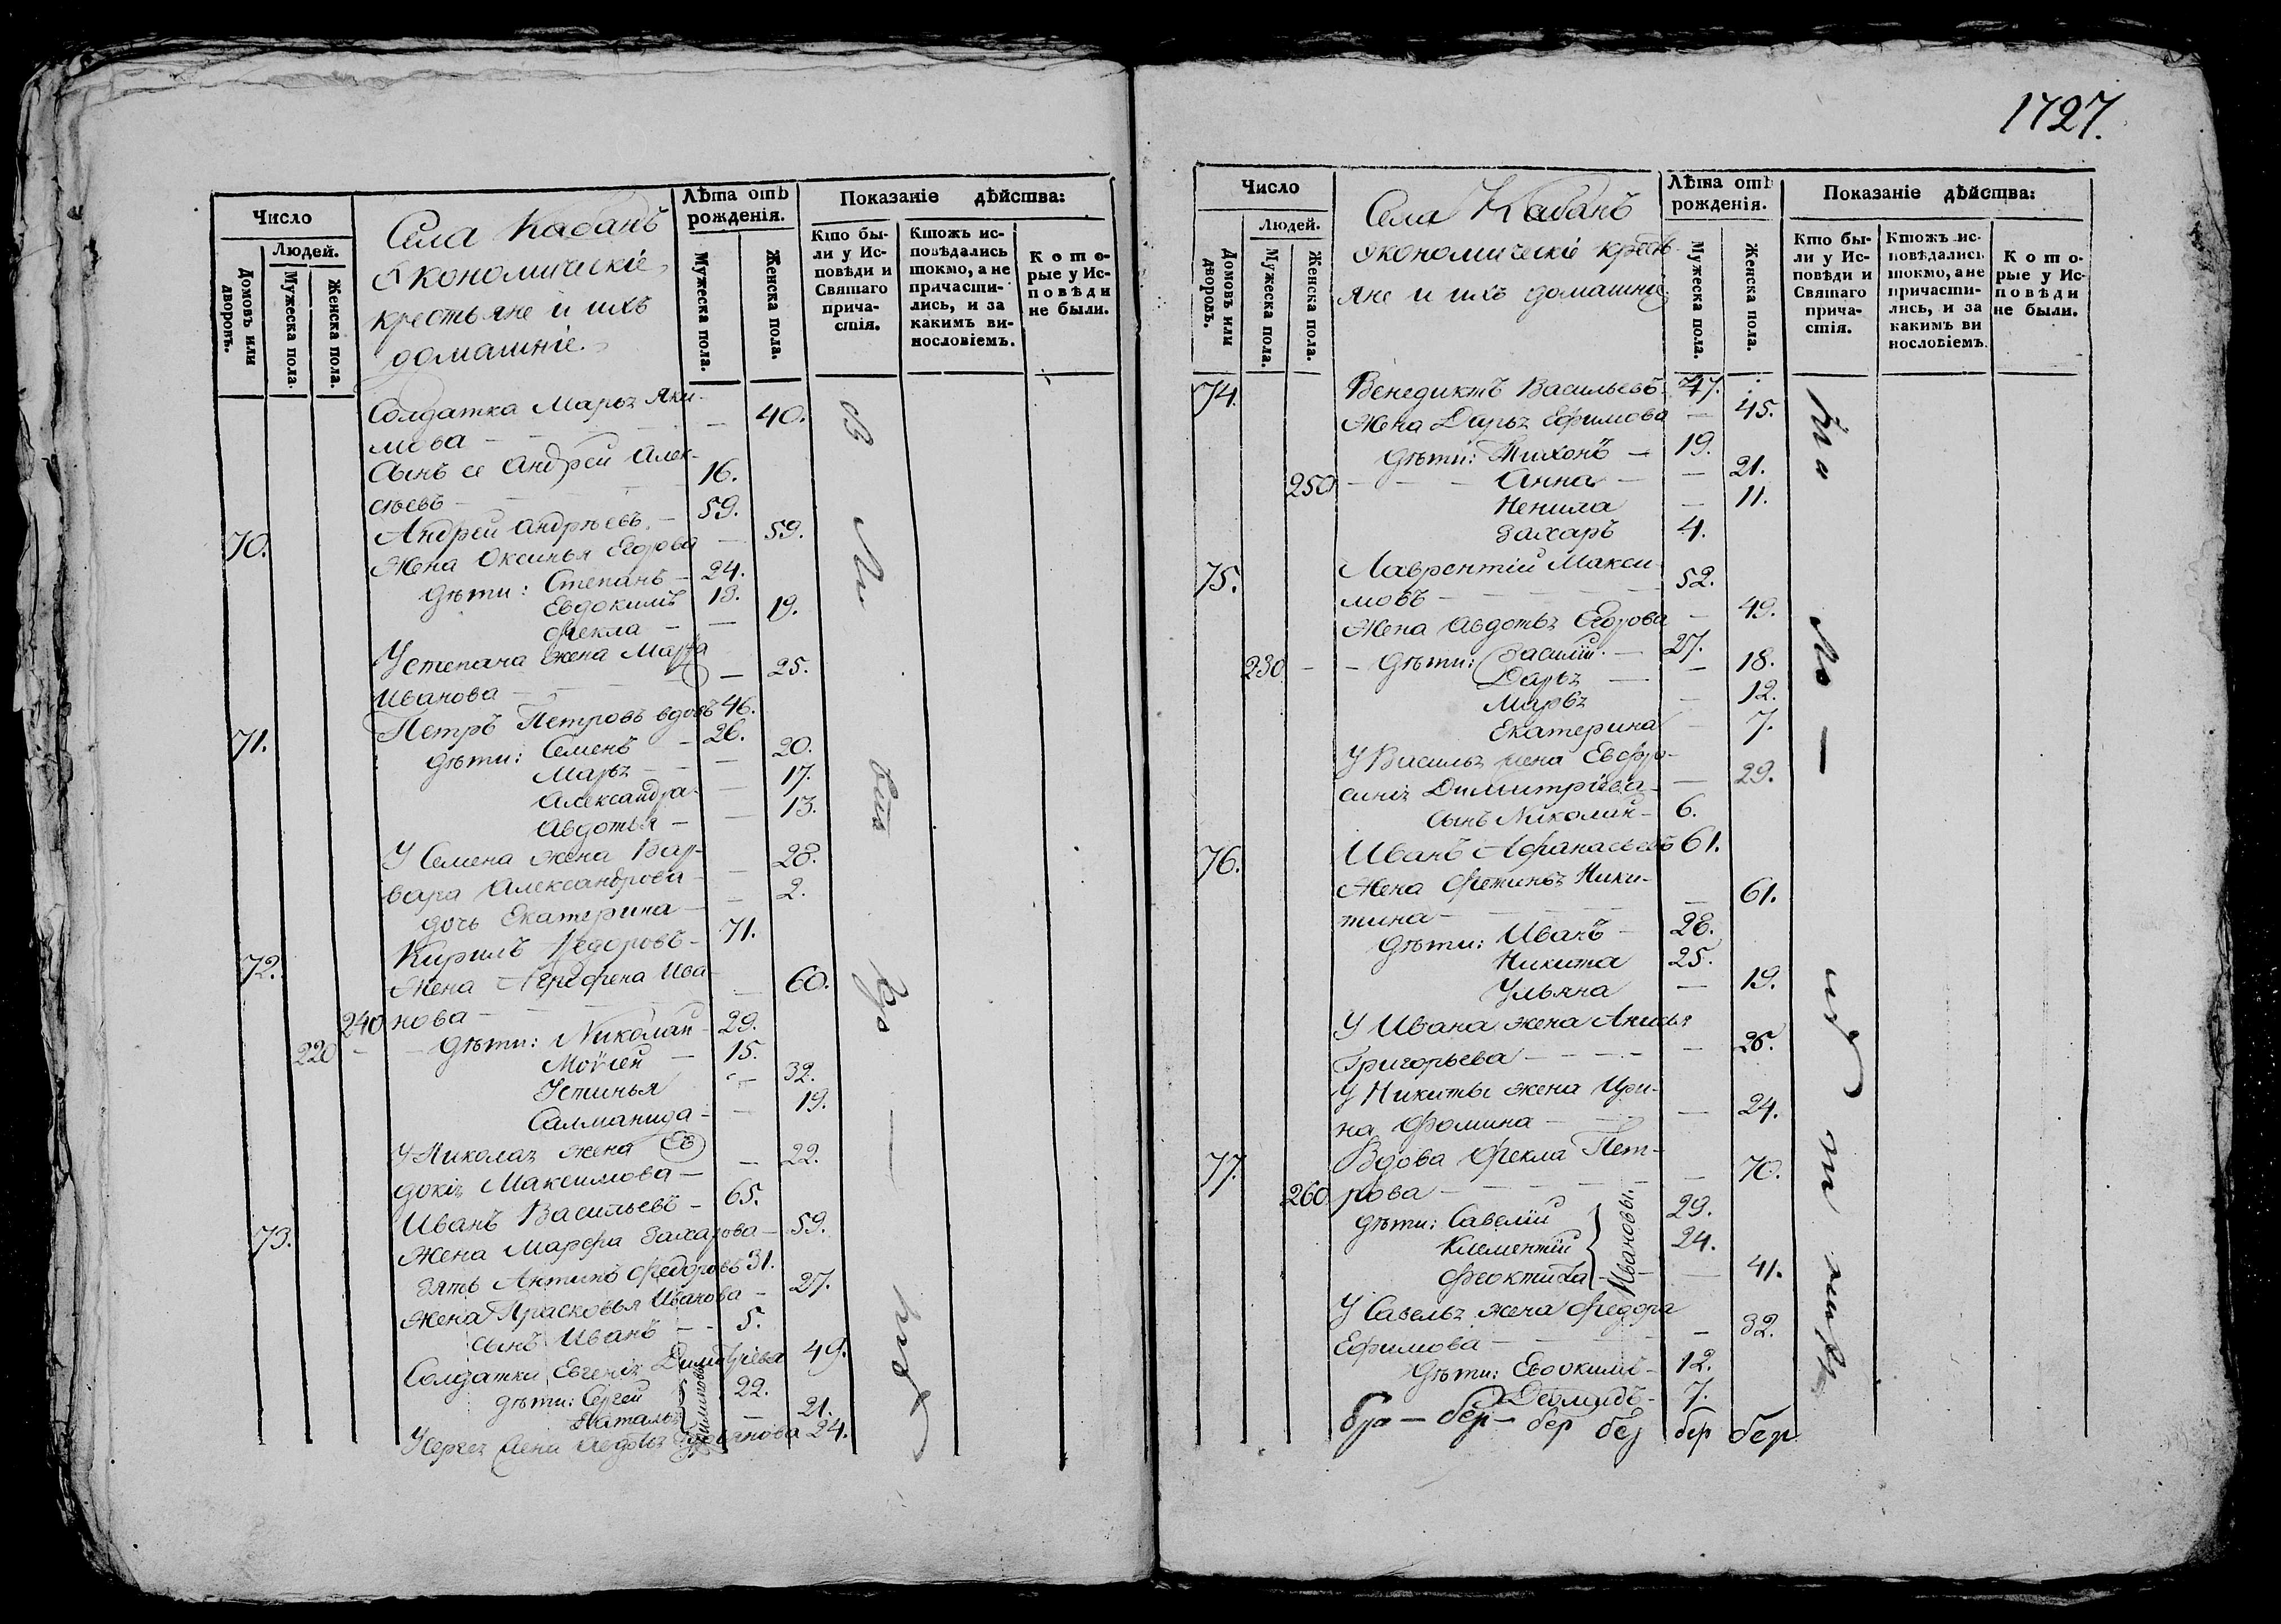 Число
Людей.
Домовъ или дворовъ.
Мужеска пола.
Женска пола.
Села Кабанъ
Економическіе
крестьяне и ихъ
домашніе.
Лѣта отъ рожденія.
Мужеска пола.
Женска пола.
Показаніе дѣйства:
Кто бы-
ли у Ис-
повѣди и
Святаго
прича-
стія.
Ктожъ ис-
повѣдались
токмо, а не
причасти-
лись, и за
какимъ ви-
нословіемъ.
Кото-
рые у Ис-
повѣди
не были.
Солдатка Марья Яки-
мова — 40.
Сынъ ее Андрей Алек-
сѣевъ — 16.
70. Андрей Андрѣевъ — 59.
Жена Оксинья Егорова — 59.
дѣти: Степанъ — 24.
Евдокимъ 19.
Фекла — 19.
У Степана жена Марфа
Иванова — 25.
71. Петръ Петровъ вдовъ 46.
дѣти: Семенъ — 26.
Марья — 20.
Александра — 17.
Авдотья — 13.
У Семена жена Вар-
вара Александрова — 28.
дочь Екатерина — 2.
72. Кирилъ Федоровъ — 71.
Жена Агрефена Ива-
240 нова — 60.
220 — дѣти: Николай — 29.
Моѵсей — 15.
Устинья — 32.
Салманида — 19.
У Николая жена Ев
докія Максимова — 22.
73. Иванъ Васильевъ — 65.
Жена Марфа Захарова — 59.
Зять Антипъ Федоровъ 31.
Жена Прасковья Иванова — 27.
сынъ Иванъ — 5.
Солдатки Евгенія Димитріева 49.
дѣти: Сергей 22.
Наталья — 21.
У Сергея жена Авдотья 24.
1727.
Число
Людей.
Домовъ или дворовъ.
Мужеска пола.
Женска пола.
Села Кабанъ
экономическіе кресть
яне и ихъ домашніе
Лѣта отъ рожденія.
Мужеска пола.
Женска пола.
Показаніе дѣйства:
Кто бы-
ли у Ис-
повѣди и
Святаго
прича-
стія.
Ктожъ ис-
повѣдались
токмо, а не
причасти-
лись, и за
какимъ ви
нословіемъ.
Кото-
рые у Ис-
повѣди
не были.
74. Венедиктъ Васильевъ 47.
Жена Дарья Ефимова — 45.
дѣти: Тихонъ — 19.
250 — Анна — 21.
Ненила — 11.
Захаръ 4.
75. Лаврентій Макси
мовъ — 52.
Жена Авдотья Егорова — 49.
230 — дѣти: Василій — 27.
Дарья — 18.
Марья — 12.
Екатерина — 7.
У Василья жена Евфро-
синія Димитріева — 29.
сынъ Николай — 6.
76. Иванъ Афанасьевъ 61.
Жена Фетинья Ники-
тина — 61.
дѣти: Иванъ — 28.
Никита 25.
Ульяна — 19.
У Ивана жена Анисья
Григорьева — 26.
У Никиты жена Ири-
на Фомина — 24.
77. Вдова Фекла Пет-
260 рова — 70.
дѣти: Савелій 29.
Климентій 24.
Феоктиста — 41.
Ивановы.
У Савелья жена Федора
Ефимова — 32.
дѣти: Евдокимъ — 12.
Демидъ — 7.